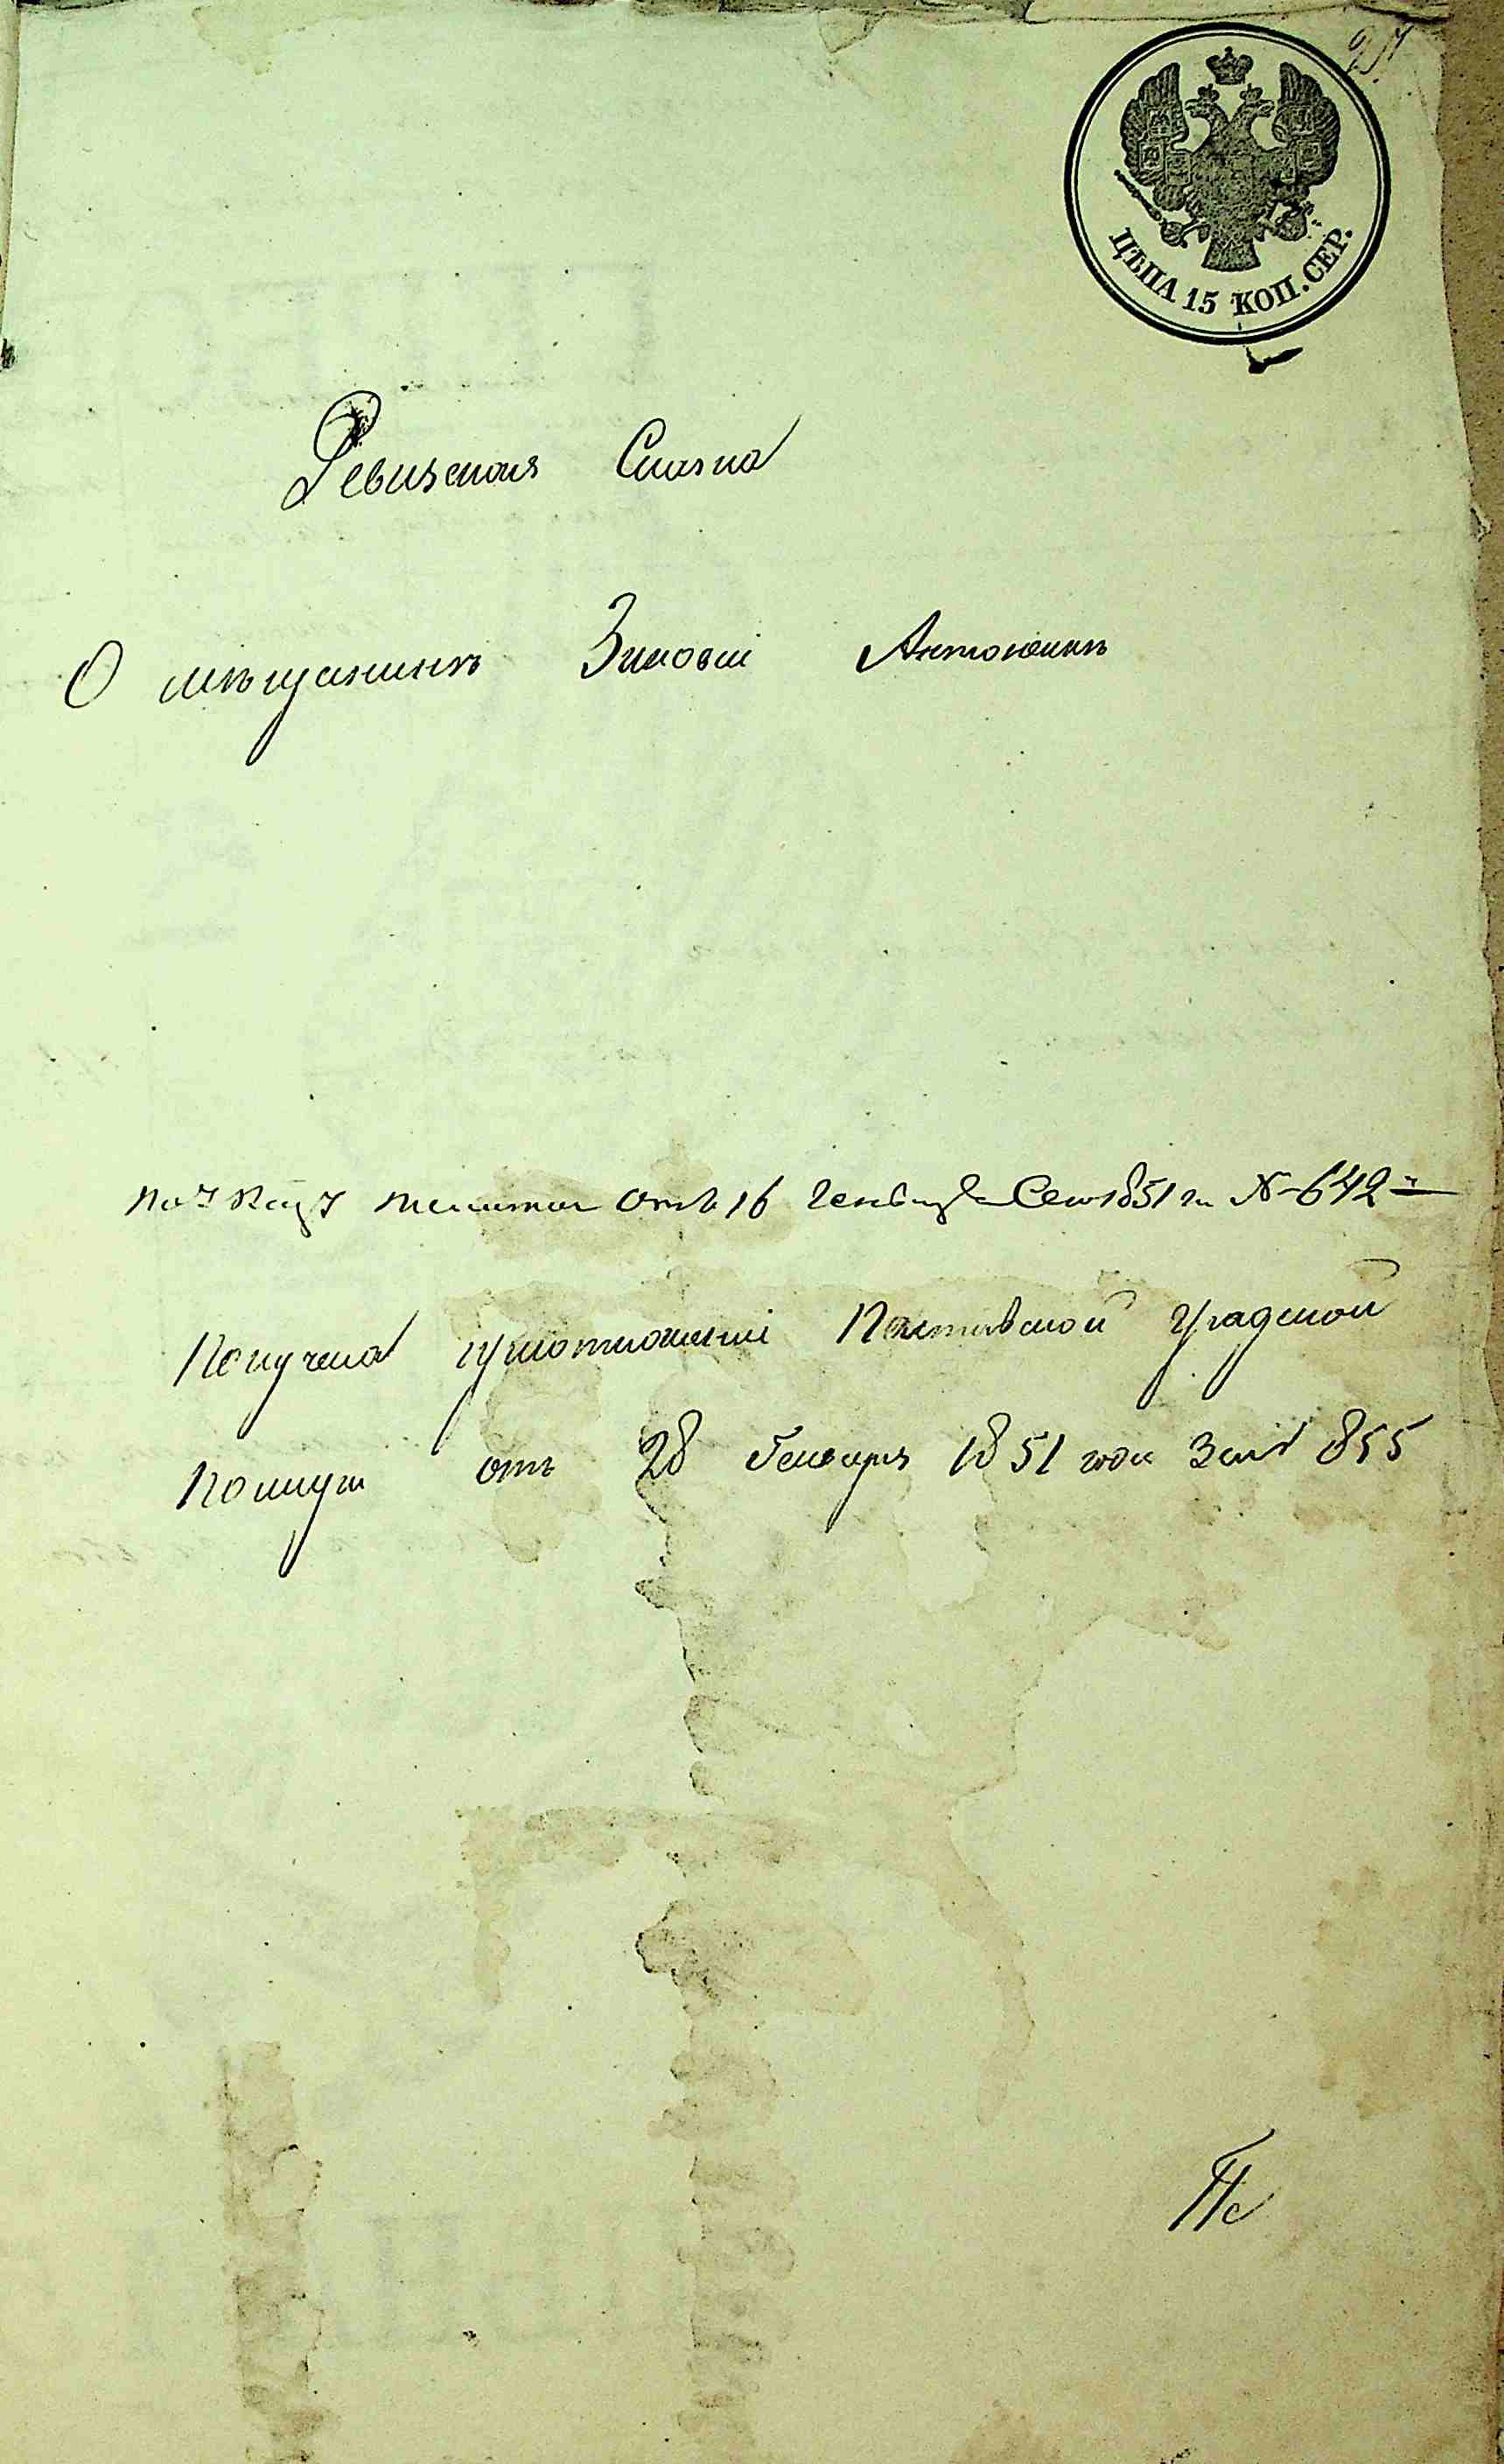 ЦѢНА 15 КОП. СЕР.
Ревизская Сказка
О мѣщанинѣ Зиновіи Антоненкѣ
По указу палаты отъ 16 Генваря сего 1851 г. № 642
Получена при отношеніи Полтавской Градской
Полиціи отъ 28 Генваря 1851 года за № 855